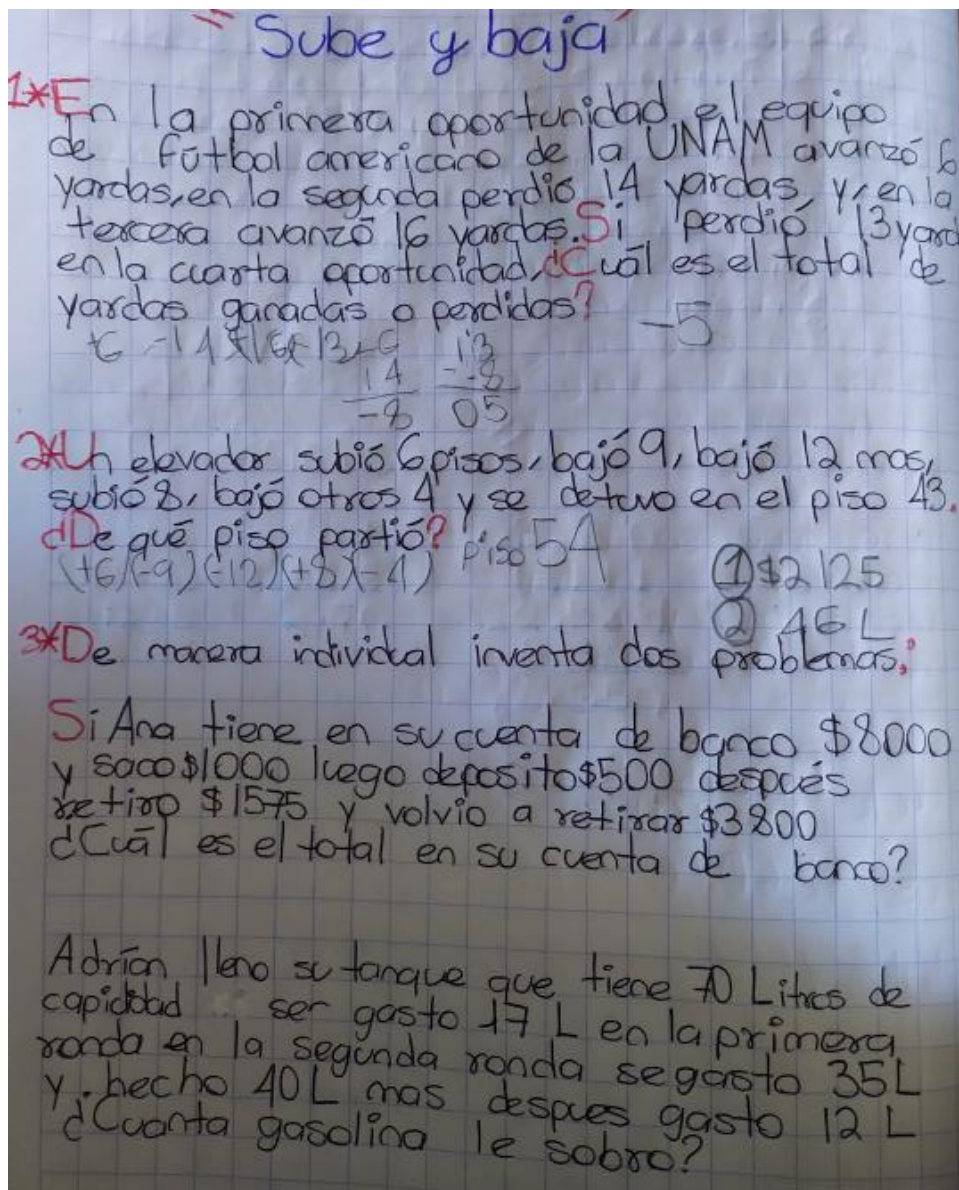 "Sube y baja"
1*En la primera oportunidad, el equipo
de fútbol americano de la UNAM avanzó 6
yardas, en la segunda perdió 14 yardas, y, en la
tercera avanzó 16 yardas. Si perdió 13 yard
en la cuarta oportunidad, ¿Cuál es el total de
yardas ganadas o perdidas?
-5
+6 -14 +16 -13
14
-8
13
-8
05
2*Un elevador subió 6 pisos, bajó 9, bajó 12 mas,
subió 8, bajó otros 4 y se detuvo en el piso 43.
¿De qué piso partió? piso 54
(+6)(-9)(-12)(+8)(-4)
① $2125
② 46 L
3*De manera individual inventa dos problemas.
Si Ana tiene en su cuenta de banco $8000
y saco $1000 luego deposito $500 después
retiro $1575 y volvio a retirar $3800
¿Cuál es el total en su cuenta de banco?
Adrían lleno su tanque que tiene 70 Litros de
capidad ser gasto 17 L en la primera
ronda en la segunda ronda se gasto 35L
y hecho 40L mas despues gasto 12 L
¿Cuanta gasolina le sobro?